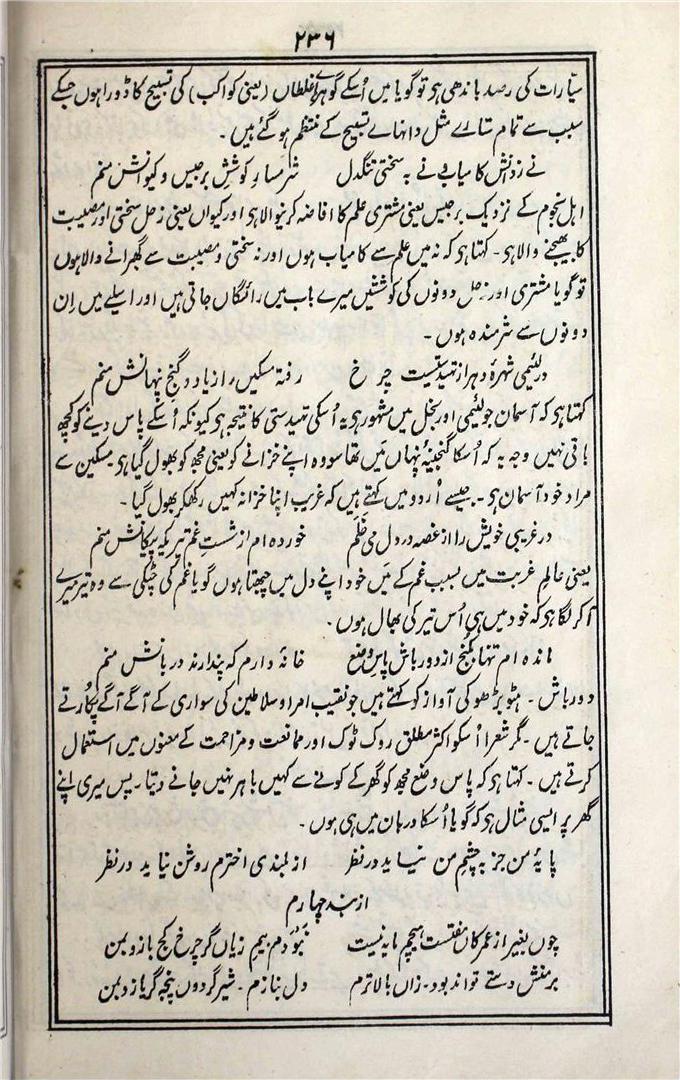 ۲۳۶
سیّارات کی رصد باندھی ہو تو گویا میں اُسکے گوہرِ غلطاں (یعنی کواکب) کی تسبیح کا ڈورا ہوں جسکے
سبب سے تمام ستارے مثل دانہاے تسبیح کے منتظم ہو گئے ہیں۔
نے ز دانش کامیابے نے بہ سختی تنگدل شرمسارِ کوششِ برجیس و کیوانش منم
اہل نجوم کے نزدیک برجیس یعنی مشتری علم کا افاضہ کرنیوالا ہو اور کیواں یعنی زحل سختی اور مصیبت
کا بھیجنے والا ہو۔ کہتا ہو کہ نہ میں علم سے کامیاب ہوں اور نہ سختی و مصیبت سے گھبرانے والا ہوں
تو گویا مشتری اور زحل دونوں کی کوششیں میرے باب میں رائگاں جاتی ہیں اور اسلیے میں اِن
دونوں سے شرمندہ ہوں۔
در لئیمی شہرۂ دہر از تہیدستیست چرخ رفتہ مسکیں را ز یاد و گنجِ پنہانش منم
کہتا ہو کہ آسمان جو لئیمی اور بخل میں مشہور ہو یہ اُسکی تہیدستی کا نتیجہ ہو کیونکہ اُسکے پاس دینے کو کچھ
باقی نہیں وجہ یہ کہ اُسکا گنجینۂ پنہاں مَیں تھا سو وہ اپنے خزانے کو یعنی مجھ کو بھول گیا ہو مسکین سے
مراد خود آسمان ہو۔ جیسے اُردو میں کہتے ہیں کہ غریب اپنا خزانہ کہیں رکھکر بھول گیا۔
در غریبی خویش را از غصہ در دل می خلم خوردہ ام از شستِ غم تیرے کہ پیکانش منم
یعنی عالمِ غربت میں بسبب غم کے مَیں خود اپنے دل میں چبھتا ہوں گویا غم کی چٹکی سے وہ تیر میرے
آکر لگا ہو کہ خود میں ہی اُس تیر کی بھال ہوں۔
ماندہ ام تنہا بکنج از دورباشِ پاسِ وضع خانۂ دارم کہ پندارند دربانش منم
دورباش۔ ہٹو بڑھو کی آواز کو کہتے ہیں جو نقیب امرا و سلاطین کی سواری کے آگے آگے پکارتے
جاتے ہیں۔ گر شعرا اُسکو اکثر مطلق روک ٹوک اور ممانعت و مزاحمت کے معنوں میں استعمال
کرتے ہیں۔ کہتا ہو کہ پاس وضع مجھ کو گھر کے کونے سے کہیں باہر نہیں جانے دیتا۔ پس میری اپنے
گھر پر ایسی مثال ہو کہ گویا اُسکا دربان میں ہی ہوں۔
پایۂ من جز بہ چشمِ من نیاید در نظر از بلندی اخترم روشن نیاید در نظر
از بند چہارم
چوں بغیر از عمر کاں مفتست ہیچم مایہ نیست نبوَدم بیمِ زیاں گر چرخ کج بازد بمن
بر منش دستے تواند بود۔ زاں بالاترم دل بنازم۔ شیرِ گردوں پنجہ گر یازد بمن